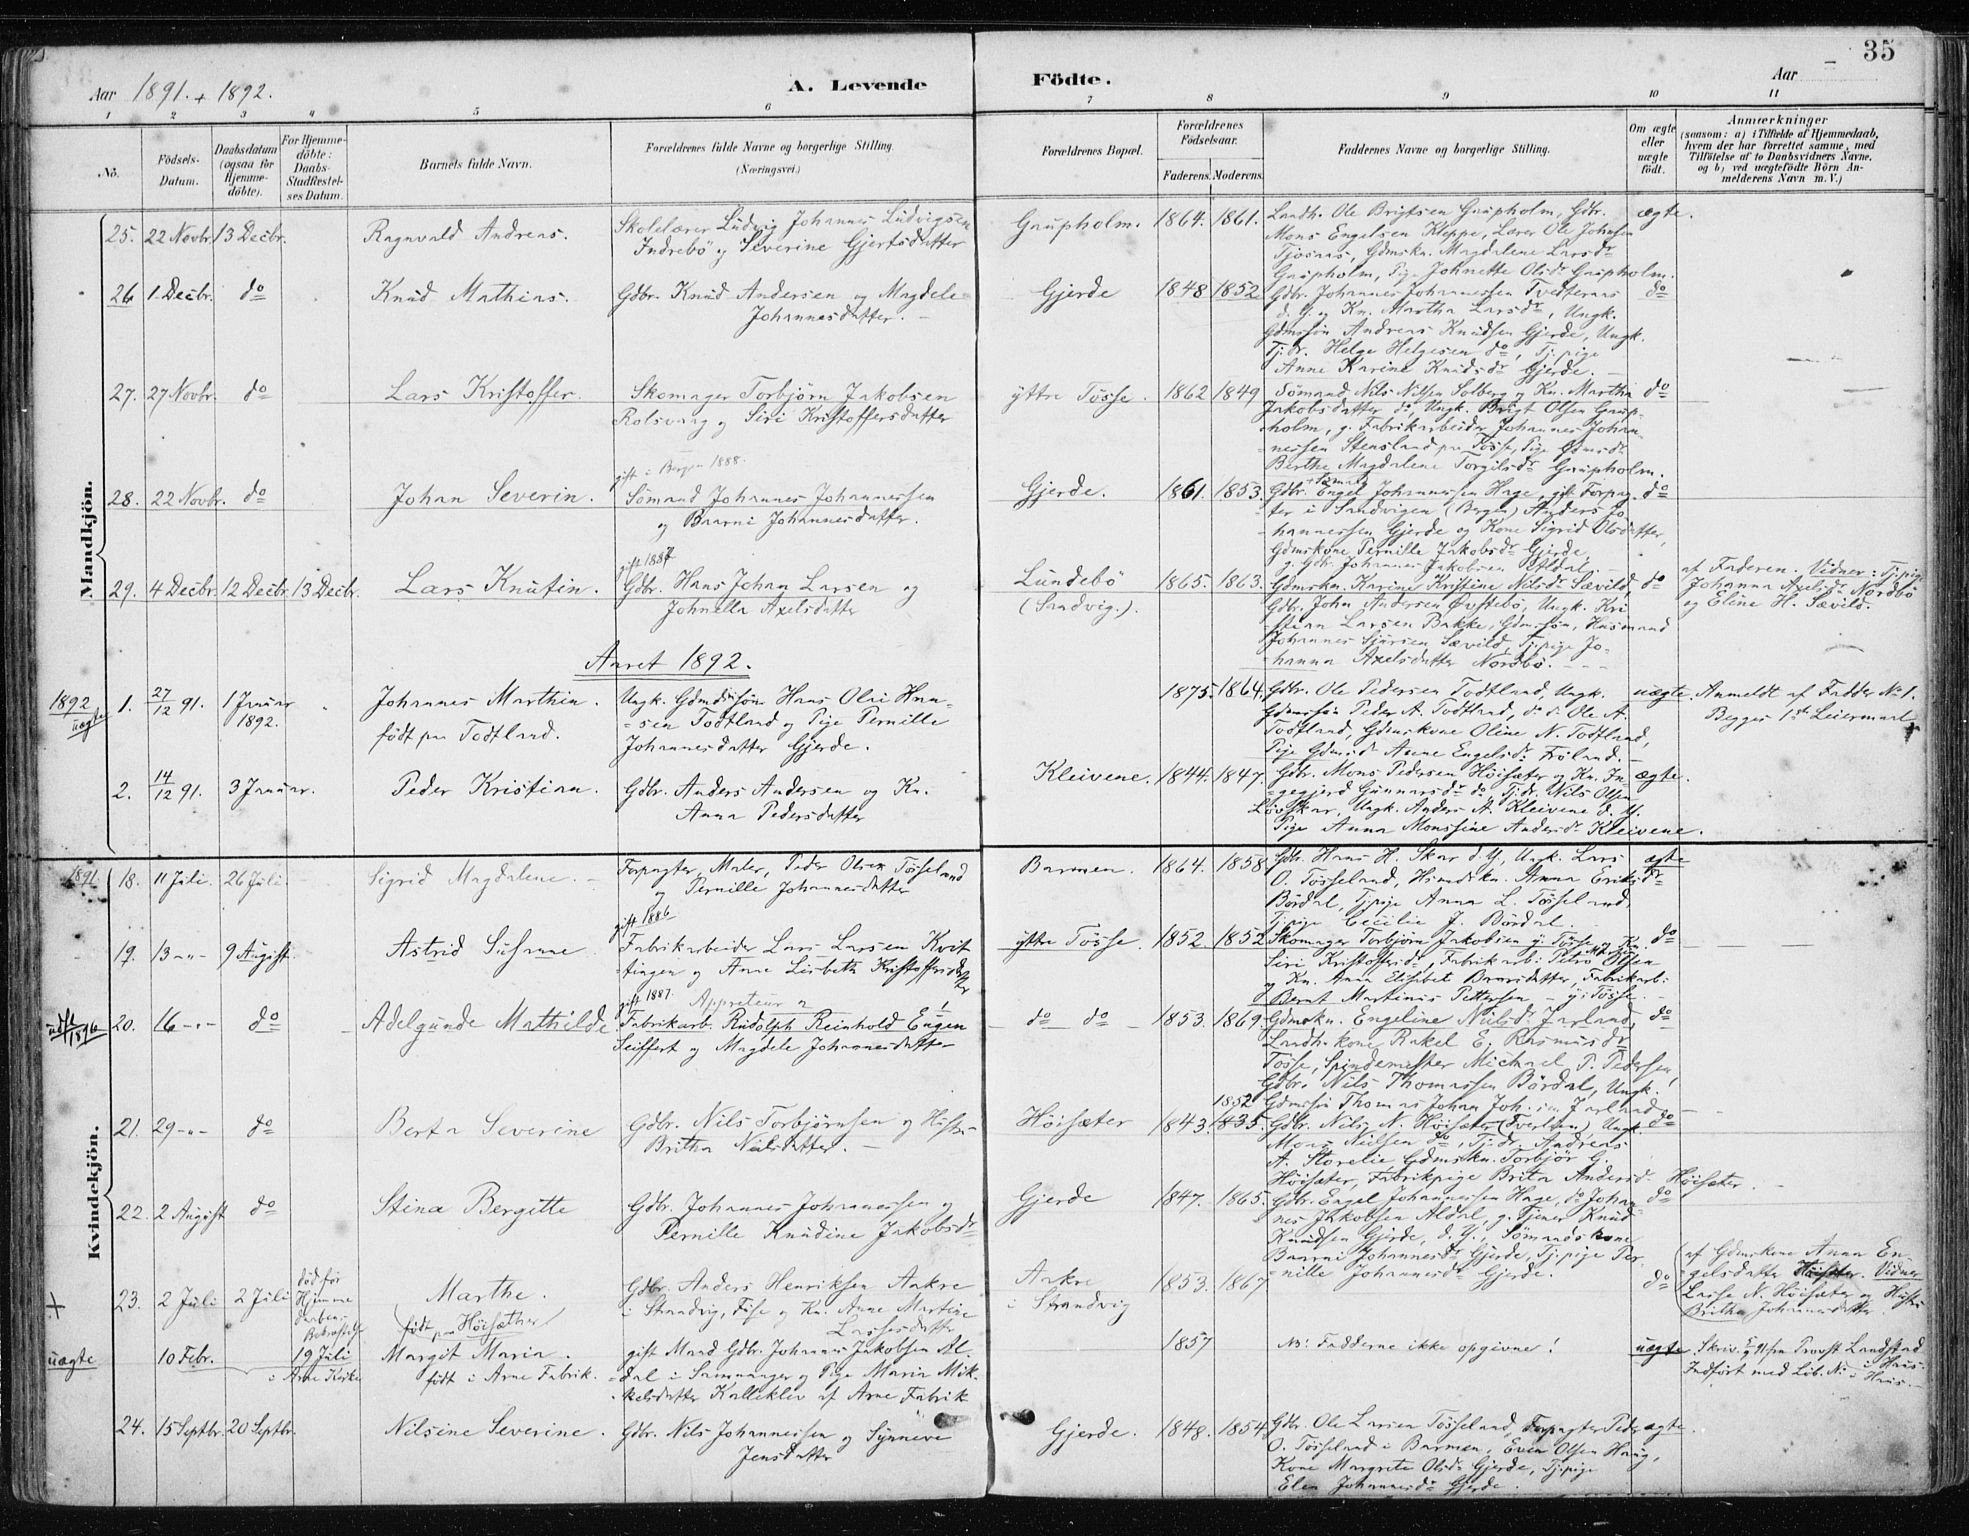 35
Aar 1891. + 1892.
A. Levende
Födte.
Aar –
1 2 3 4 5 6 7 8 9 10 11
No.
Födsels-
Datum.
Daabsdatum
(ogsaa for
Hjemme-
döbte).
For Hjemme-
döbte:
Daabs-
Stadfæstel-
ses Datum.
Barnets fulde Navn.
Forældrenes fulde Navne og borgerlige Stilling.
(Næringsvei.)
Forældrenes Bopæl.
Forældrenes
Födselsaar.
Faderens. Moderens.
Faddernes Navne og borgerlige Stilling.
Om ægte
eller
uægte
födt.
Anmærkninger
(saasom: a) i Tilfælde af Hjemmedaab,
hvem der har forrettet samme, med
Tilföielse af to Daabsvidners Navne,
og b) ved uægtefödte Börn An-
melderens Navn m. V.)
Mandkjön.
25. 22 Novbr. 13 Decbr. Ragnvald Andreas.
Skolelærer Ludvig Johannes Ludvigsen
Indrebö og Severine Gjertsdatter
Gaupholm. 1864. 1861.
Landh. Ole Brigtsen Gaupholm, Gdbr.
Mons Engelsen Kleppe, Lærer Ole Johnsen
Tjosaas, Gdmskn. Magdalene Larsdr
Gaupholm, Pige Johnette Olsdr Gaupholm.
ægte.
26 1 Decbr. do Knud Mathias.
Gdbr. Knud Andersen og Magdele
Johannesdatter. –
Gjerde 1848 1852
Gdbr. Johannes Johannessen Tvedteraas
d. Y. og Kn. Martha Larsdr, Ungk.
Gdmssön Andreas Knudsen Gjerde, Ungk.
Tj.dr. Helge Helgesen do, Tj.pige
Anne Karine Knudsdr Gjerde. –
do
27. 27 Novbr. do Lars Kristoffer.
Skomager Torbjørn Jakobsen
Rolsvaag og Siri Kristoffersdatter
yttre Tösse. 1862 1849
Sömand Nils Nilsen Solberg og Kn. Martha
Jakobsdatter do, Ungk. Brigt Olsen Gaup-
holm, g. Fabrikarbeider Johannes Johan-
nessen Stensland paa Tösse, Pige Gdmsdr
Berthe Magdalene Torgilsdr Gaupholm.
do
28. 22 Novbr. do Johan Severin.
gift i Bergen 1888.
Sömand Johannes Johannessen
og Baarni Johannesdatter.
Gjerde. 1861. 1853.
Gdbr. Engel Johannessen Hage, gift Forpag-
ter i Sandvigen (Bergen) Anders Jo-
hannessen Gjerde og Kone Sigrid Olsdatter,
Gdmskone Pernille Jakobsdr Gjerde,
g. Gdbr. Johannes Jakobsen Aldal. –
do
29. 4 Decbr. 12 Decbr. 13 Decbr. Lars Knutin.
gift 1887
Gdbr. Hans Johan Larsen og
Johnella Axelsdatter
Lundebö
(Sandvig.).
1865. 1863.
Gdmskn. Karine Kristine Nilsdr Sævild,
Gdbr. John Andersen Øvstebö, Ungk. Kri-
stian Larsen Bakke, Gdmssön, Husmand
Johannes Sjursen Sævild, Tj.pige Jo-
hanna Axelsdatter Nordbö. –
do
af Faderen. Vidner: Tj.pige
Johanna Axelsdr Nordbö
og Eline H. Sævild.
Aaret 1892.
1892
uægte
1. 27/12 91. 1 Januar
1892.
Johannes Marthin.
født paa Todtland.
Ungk. Gdmdssön Hans Olai Han-
sen Todtland og Pige Pernille
Johannesdatter Gjerde.
1875. 1864.
Gdbr. Ole Pedersen Todtland, Ungk.
Gdmssön Peder A. Todtland, do do Ole A.
Todtland, Gdmskone Oline N. Todtland,
Pige Gdmsdr Anne Engelsdr Fröland. –
uægte.
Anmeldt af Fadder No 1.
Begges 1ste Leiermaal
2. 14/12 91. 3 Januar. Peder Kristian.
Gdbr. Anders Andersen og Kn.
Anna Pedersdatter
Kleivene. 1844. 1847.
Gdbr. Mons Pedersen Höisæter og Kn. In-
gegjerd Gunnarsdr do, Tj.dr. Nils Olsen
Lövskar, Ungk. Anders A. Kleivene d. Y.
Pige Anna Monssine Andersdr Kleivene.
ægte.
Kvindekjön.
1891
18. 11 Juli. 26 Juli. Sigrid Magdalene. –
Forpagter, Maler, Peder Olsen Tösseland
og Pernille Johannesdatter
Barmen. 1864. 1858.
Gdbr. Hans H. Skar d. Y., Ungk. Lars
O. Tösseland, Hsmdskn. Anna Eriksdr
Bördal, Tj.pige Anna L. Tösseland,
Tj.pige Cecilie J. Bördal.
ægte
19. 13 –"– 9 August. Astrid Susanne
gift 1886
Fabrikarbeider Lars Larsen Kvit-
tingen og Anne Lisbeth Kristoffersdatter
yttre Tösse. 1852. 1852
Skomager Torbjørn Jakobsen y. Tösse og Kn.
Siri Kristoffersdr, Fabrikarb. Petro Olsen
og Kn. Anna Elisabet Baarsdatter, Fabrikarb.
Bernt Martinus Pettersen – y. Tösse. –
do
20. 16 –"– do Adelgunde Mathilde
gift 1887. Appreteur
Fabrikarb. Rudolph Reinhold Eugen
Seiffert og Magdele Johannesdatter
do do 1853. 1869
Gdmskn. Engeline Nielsdr Jarland,
Landh.kone Rakel E. Rasmusdr
Tösse, Spindemester Michael P. Pedersen,
Gdbr. Nils Thomassen Bördal, Ungk.
Gdmssön Thomas Johan Joh.sen Jarland
do
21. 29 –"– do Berta Severine
Gdbr. Nils Torbjørnsen og Hustru
Britha Nielsdatter. –
Höisæter 1843. 1852 1835.
Gdbr. Nils N. Höisæter (Tvertnes) Ungk.
Mons Nielsen do, Tj.dr. Andreas
A. Storelie, Gdmskn. Torbjör G.
Höisæter, Fabrikpige Brita Andersdr Höisæter.
do
22. 2 August do Stina Bergitte
Gdbr. Johannes Johannessen og
Pernille Knudine Jakobsdr
Gjerde 1847. 1865.
Gdbr. Engel Johannessen Hage, do Johan-
nes Jakobsen Aldal, g. Tjener Knud
Knudsen Gjerde, d. Y., Sömandskone
Baarni Johannesdr Gjerde, Tj.pige Per-
nille Johannesdr Gjerde.
do
+ 23. 2 Juli 2 Juli
död før
Hjemme
daaben
Bekræftelse
Marthe.
(født paa Höisæther)
Gdbr. Anders Henriksen Aakre
i Strandvig, Fuse og Kn. Anne Martine
Larsesdatter
Aakre
i Strandvig
1853. 1867
do
af Gdmskone Anna En-
gelsdatter Höisæter. Vidner
Lasse N. Höisæter og Hustru
Britha Johannesdatter.
uægte
10 Febr. 19 Juli
i Arne Kirke
Margit Maria.
født i Arne Fabrik.
gift Mand Gdbr. Johannes Jakobsen Al-
dal i Sammanger og Pige Maria Mik-
kelsdatter Kalleklev af Arne Fabrik
1857
NB: Fadderne ikke opgivne!
uægte.
Skriv. fra Provst Landstad
Indført med Löb. No i Haus. –
24. 15 Septbr. 20 Septbr. Nilsine Severine.
Gdbr. Nils Johannessen og Synneve
Jensdatter
Gjerde. 1848. 1854
Gdbr. Ole Larsen Tösseland, Forpagter Peder
O. Tösseland i Barmen, Even Olsen Haug,
Kone Margrete Olsdr Gjerde, Tj.pige
Elen Johannesdr Gjerde.
ægte.